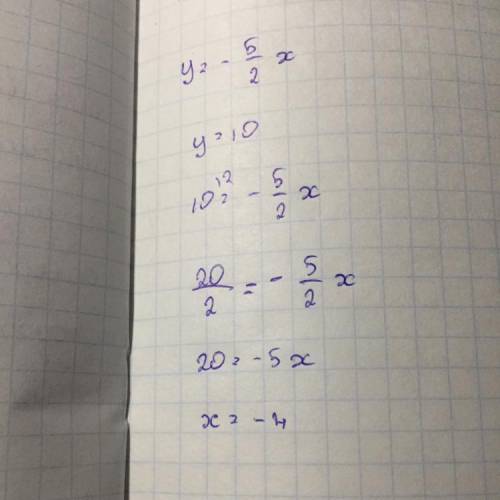 y = - 5/2 x
y = 10
10 ^{12} = - 5/2 x
20/2 = - 5/2 x
20 = -5x
x = -4